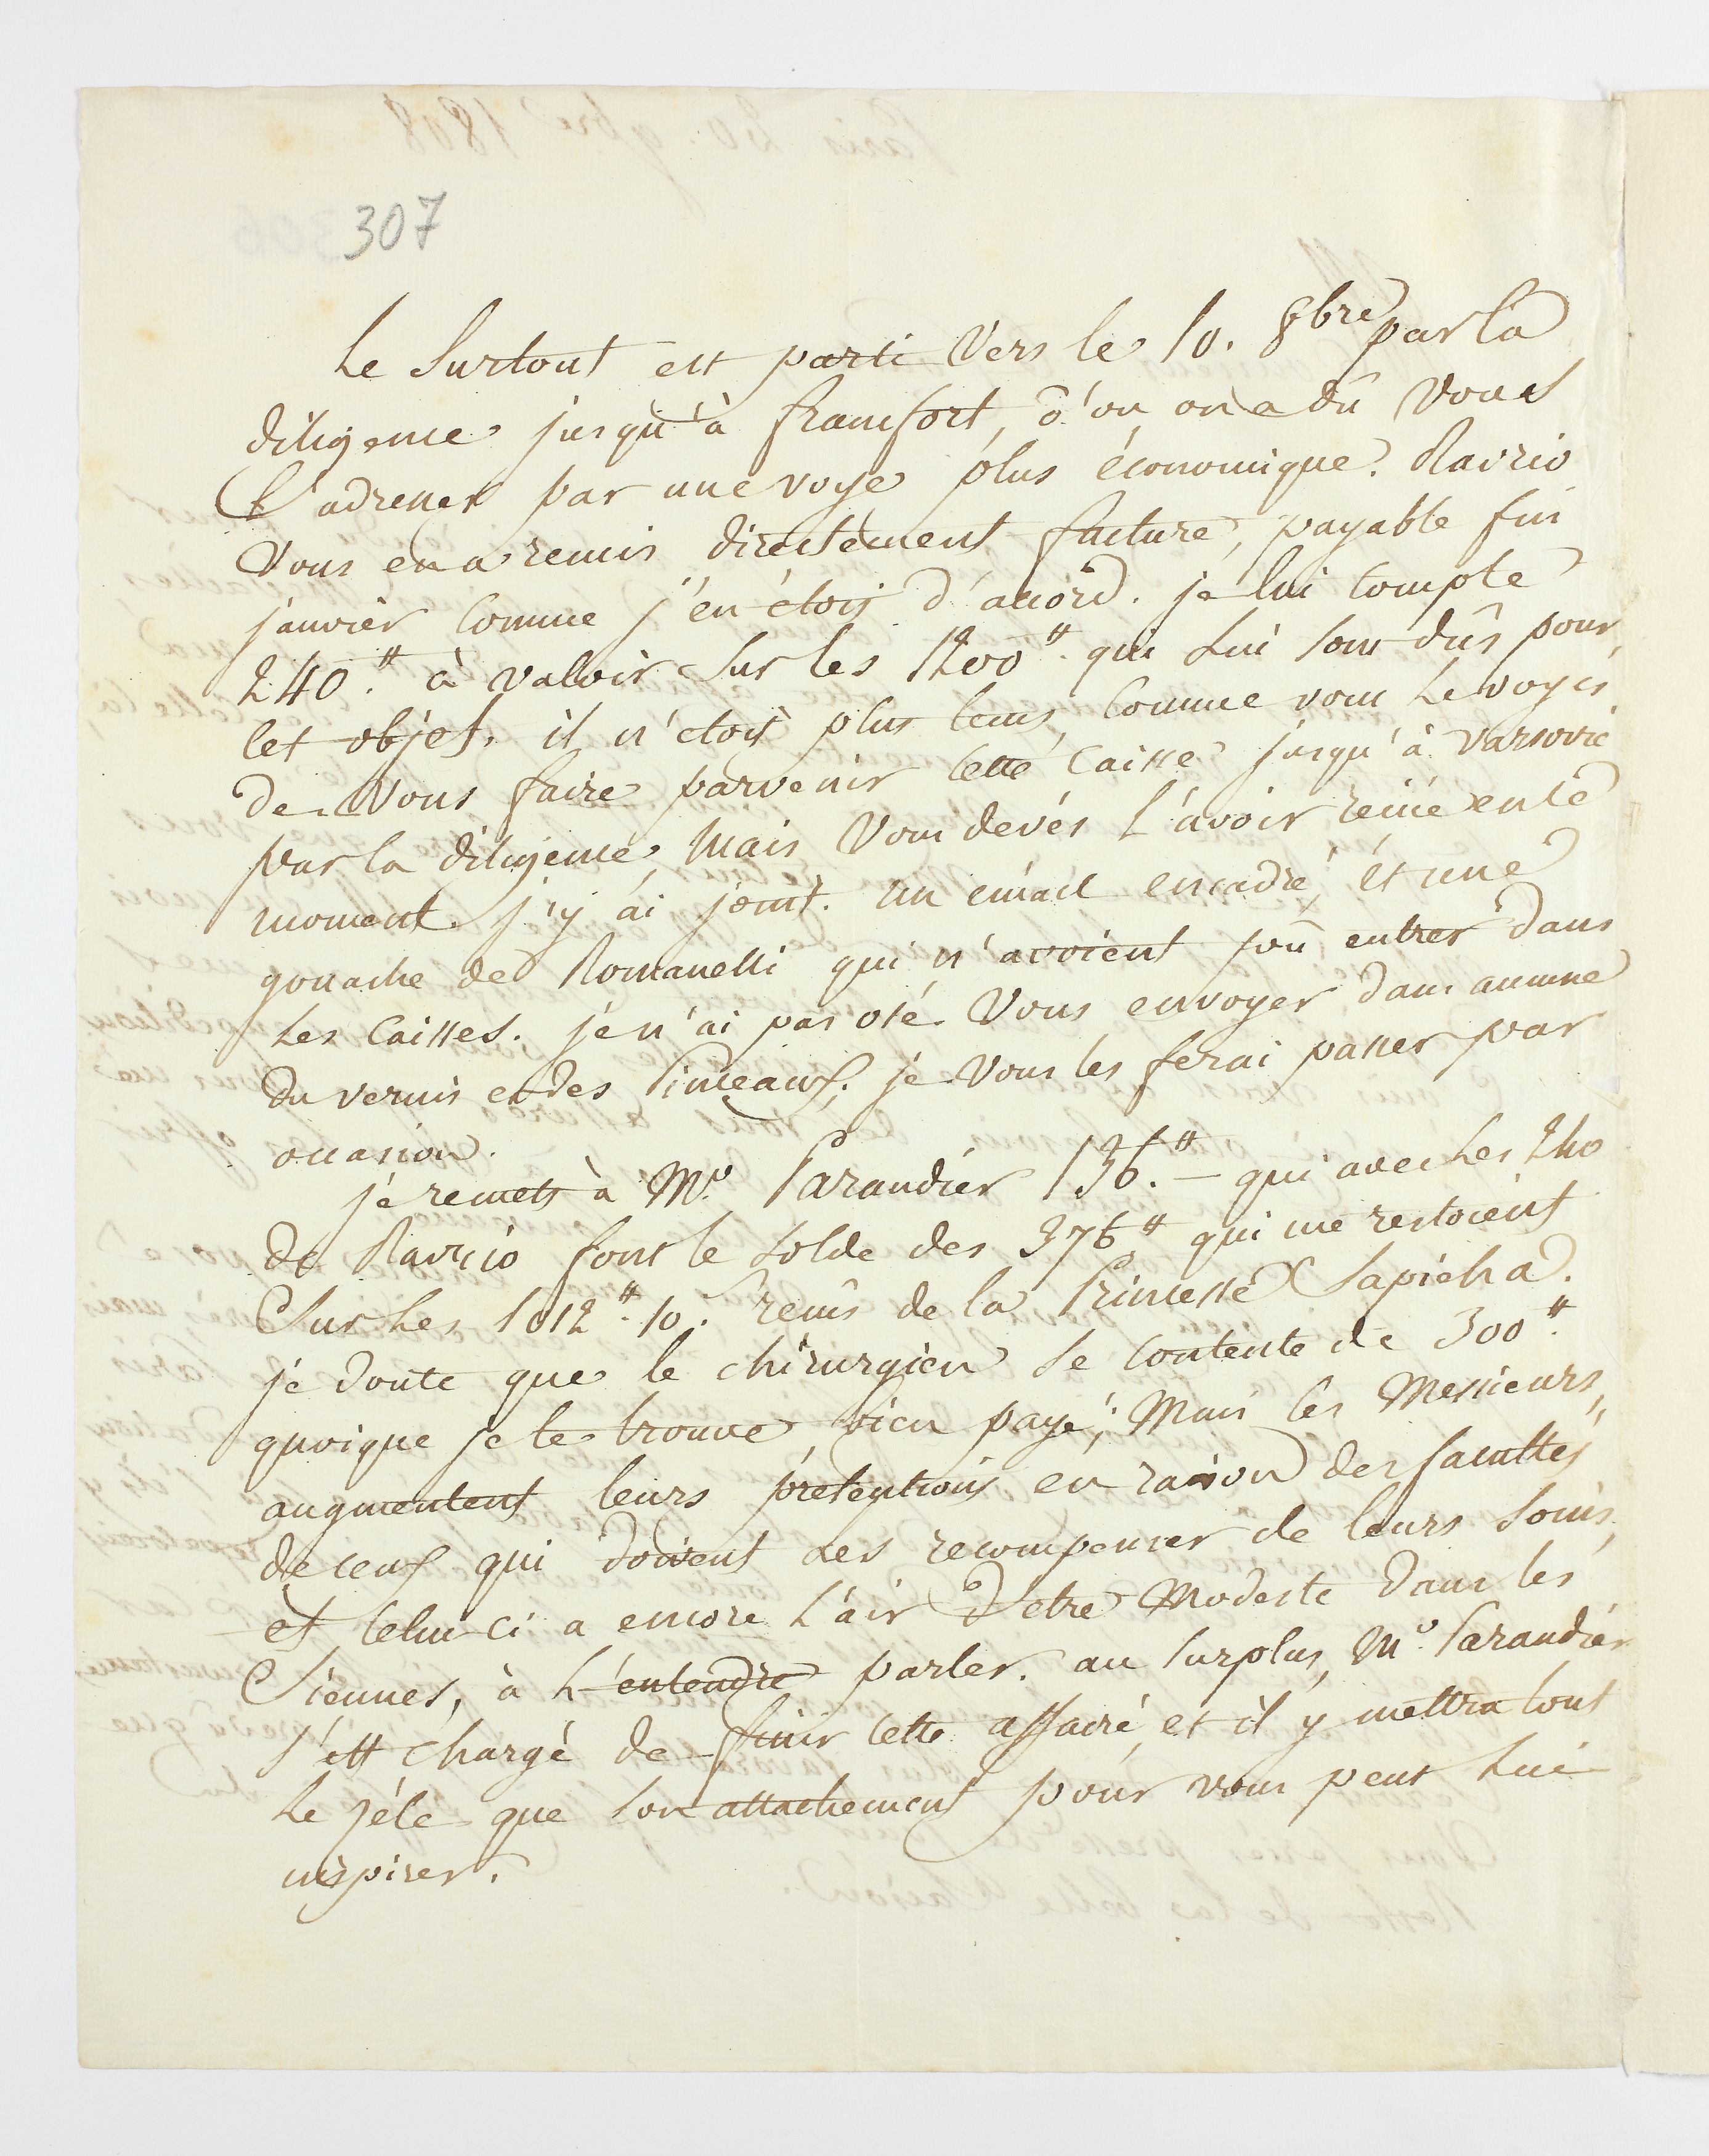 307
Le Surtout est parti Vers le 10. 8bre par la
diligence jusqu'à francfort, d'ou on a dû Vous
l'adresser par une voye plus économique. Ravrio
Vous en a remis directement facture, payable fin
janvier comme j'en étois d'accord. je lui compte
240.# à valoir sur les 1200# qui lui sont dûs pour
cet objet. il n'etois plus tems, comme vous le voyés
de Vous faire parvenir cette caisse jusqu'à varsovie
par la diligence, Mais Vous devés l'avoir reçüe en ce
moment. j'y ai joint un émail encadré, et une
gouache de Romanelli qui n'avoient pû entrer dans
les caisses. je n'ai pas osé Vous envoyer dans aucune
du vernis et des Pinceaux; je Vous les ferai passer par
occasion.
je remets à Mr. Parandier 136.# — qui avec les 240
de Ravrio font le solde des 376# qui me restoient
Sur les 1012#. 10. reçus de la Princesse Sapieha.
je doute que le chirurgien se contente de 300#.
quoique je le trouve bien payé; Mais ces Messieurs,
augmentent leurs pretentions en raison des facultés
de ceux qui doivent les recompenser de leurs soins,
et celui-ci a encore l'air d'etre Modeste dans les
Siennes, à l'entendre parler. au surplus, Mr. Parandier
s'est chargé de finir cette affaire, et il y mettra tout
le zéle que son attachement pour vous peut lui
inspirer.